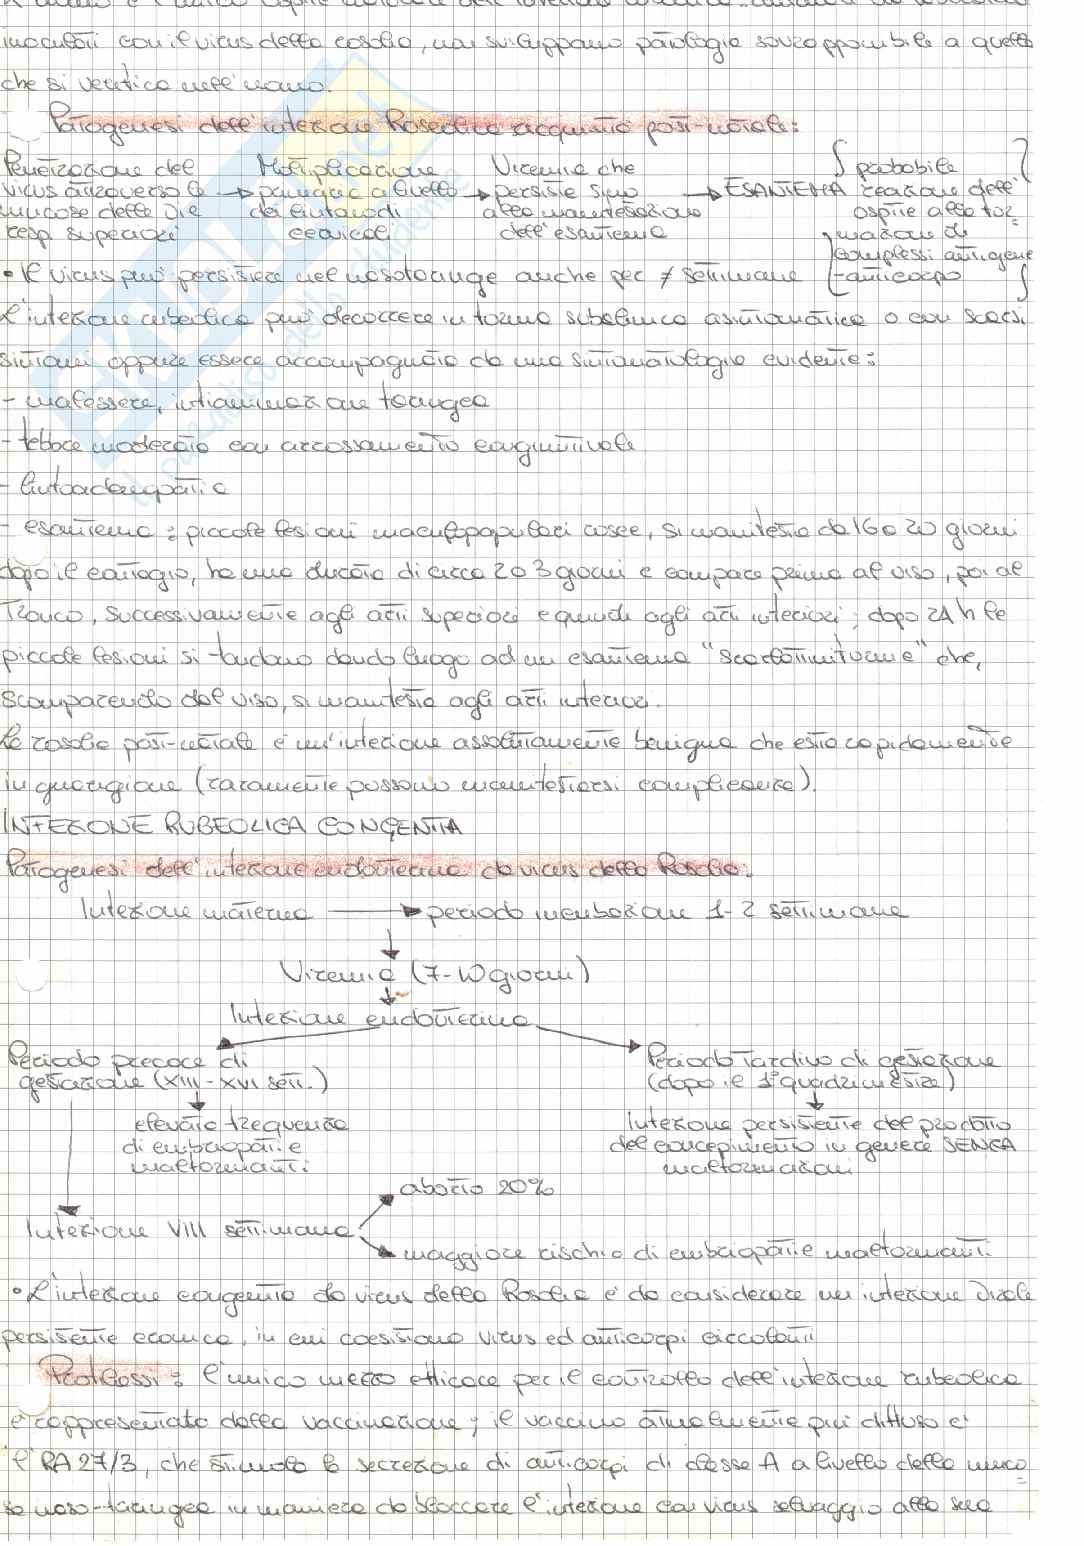 inoculati con il virus della rosolia, non sviluppano patologia sovrapponibile a quella
che si verifica nell'uomo.
Patogenesi dell'infezione Rubeolica acquisita post-natale:
Penetrazione del virus attraverso le mucose delle vie resp. superiori → Moltiplicazione primaria a livello dei linfonodi cervicali → Viremia che persiste sino alla manifestazione dell'esantema → ESANTEMA { probabile reazione dell'ospite alla formazione di complessi antigene-anticorpo }
• Il virus può persistere nel nasofaringe anche per 7 settimane
L'infezione rubeolica può decorrere in forma subclinica asintomatica o con scarsi
sintomi oppure essere accompagnata da una sintomatologia evidente:
- malessere, infiammazione faringea
- febbre moderata con arrossamento congiuntivale
- linfoadenopatia
- esantema: piccole lesioni maculopapulari rosee, si manifesta da 16 a 20 giorni
dopo il contagio, ha una durata di circa 2 o 3 giorni e compare prima al viso, poi al
Tronco, successivamente agli arti superiori e quindi agli arti inferiori; dopo 24 h le
piccole lesioni si fondono dando luogo ad un esantema "scarlattiniforme" che,
scomparendo dal viso, si manifesta agli arti inferiori.
La rosolia post-natale è un'infezione assolutamente benigna che esita rapidamente
in guarigione (raramente possono manifestarsi complicanze).
INFEZIONE RUBEOLICA CONGENITA
Patogenesi dell'infezione endouterina da virus della Rosolia:
Infezione materna → periodo incubazione 1-2 settimane
Viremia (7-10 giorni)
Infezione endouterina
Periodo precoce di
gestazione (XIII-XVI sett.)
elevata frequenza
di embriopatie
malformanti
Periodo Tardivo di gestazione
(dopo il 1° quadrimestre)
Infezione persistente del prodotto
del concepimento in genere SENZA
malformazioni
Infezione VIII settimana
aborto 20%
maggiore rischio di embriopatie malformanti.
• L'infezione congenita da virus della Rosolia è da considerare un'infezione virale
persistente cronica, in cui coesistono virus ed anticorpi circolanti
Profilassi: l'unico mezzo efficace per il controllo dell'infezione rubeolica
è rappresentato dalla vaccinazione; il vaccino attualmente più diffuso è
l'RA 27/3, che stimola la secrezione di anticorpi di classe A a livello della muco
sa naso-faringea in maniera da bloccare l'infezione con virus selvaggio alla sua